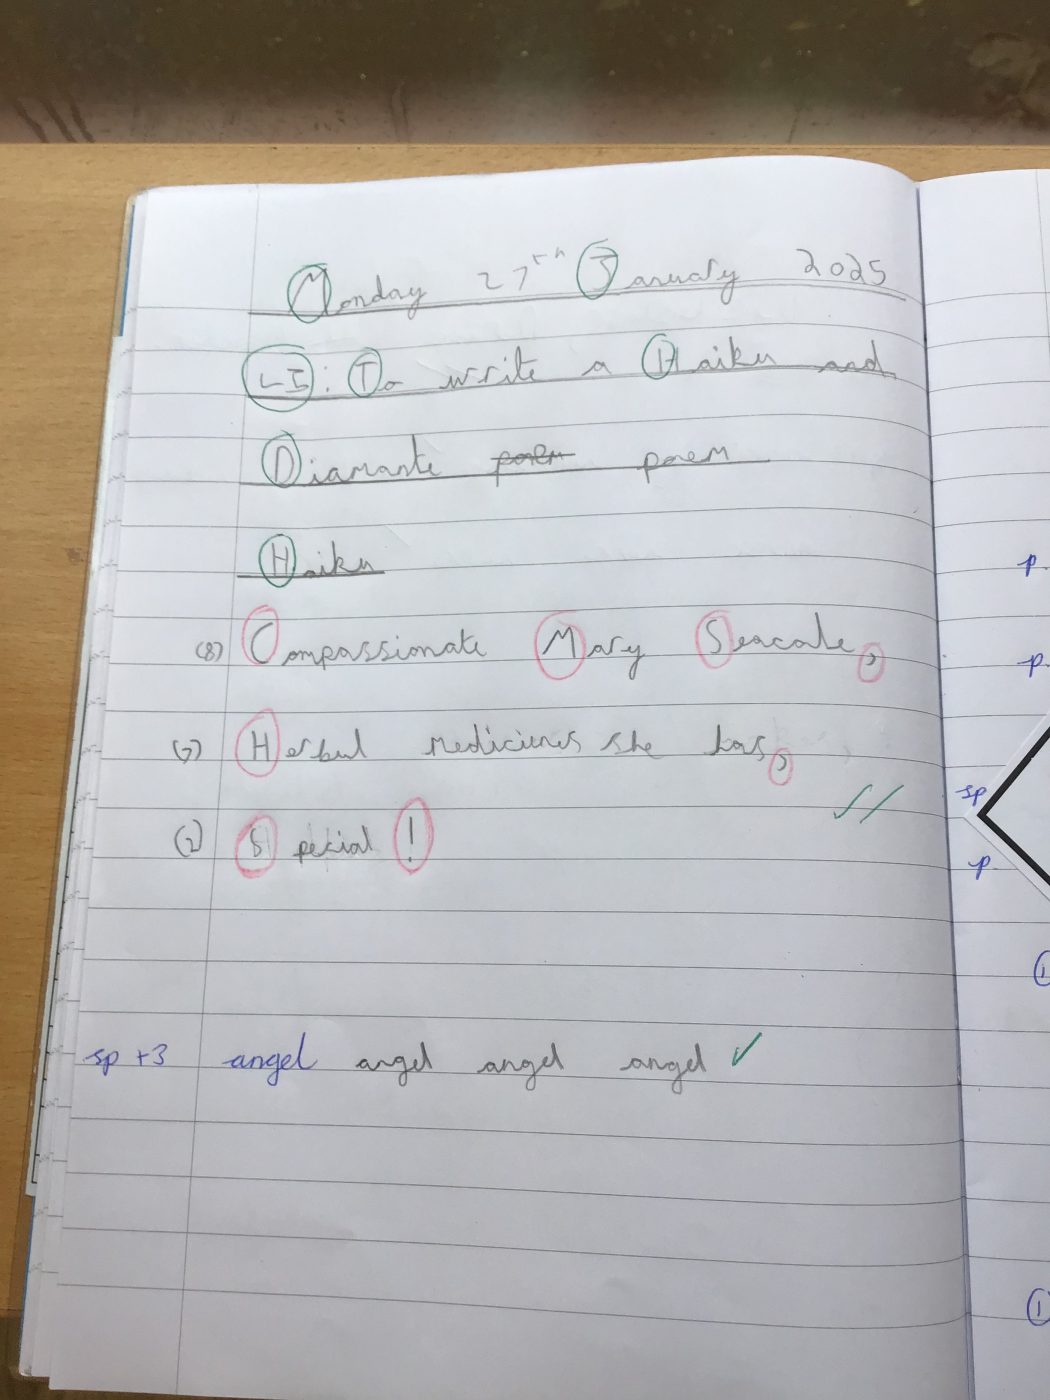 Monday 27th January 2025
LI: To write a Haiku and
Diamante poem poem
Haiku
(8) Compassionate Mary Seacole,
(7) Herbul mediciens she has,
(2) Special!
sp +3 angel angel angel angel
p.
p.
sp
p.
1
1